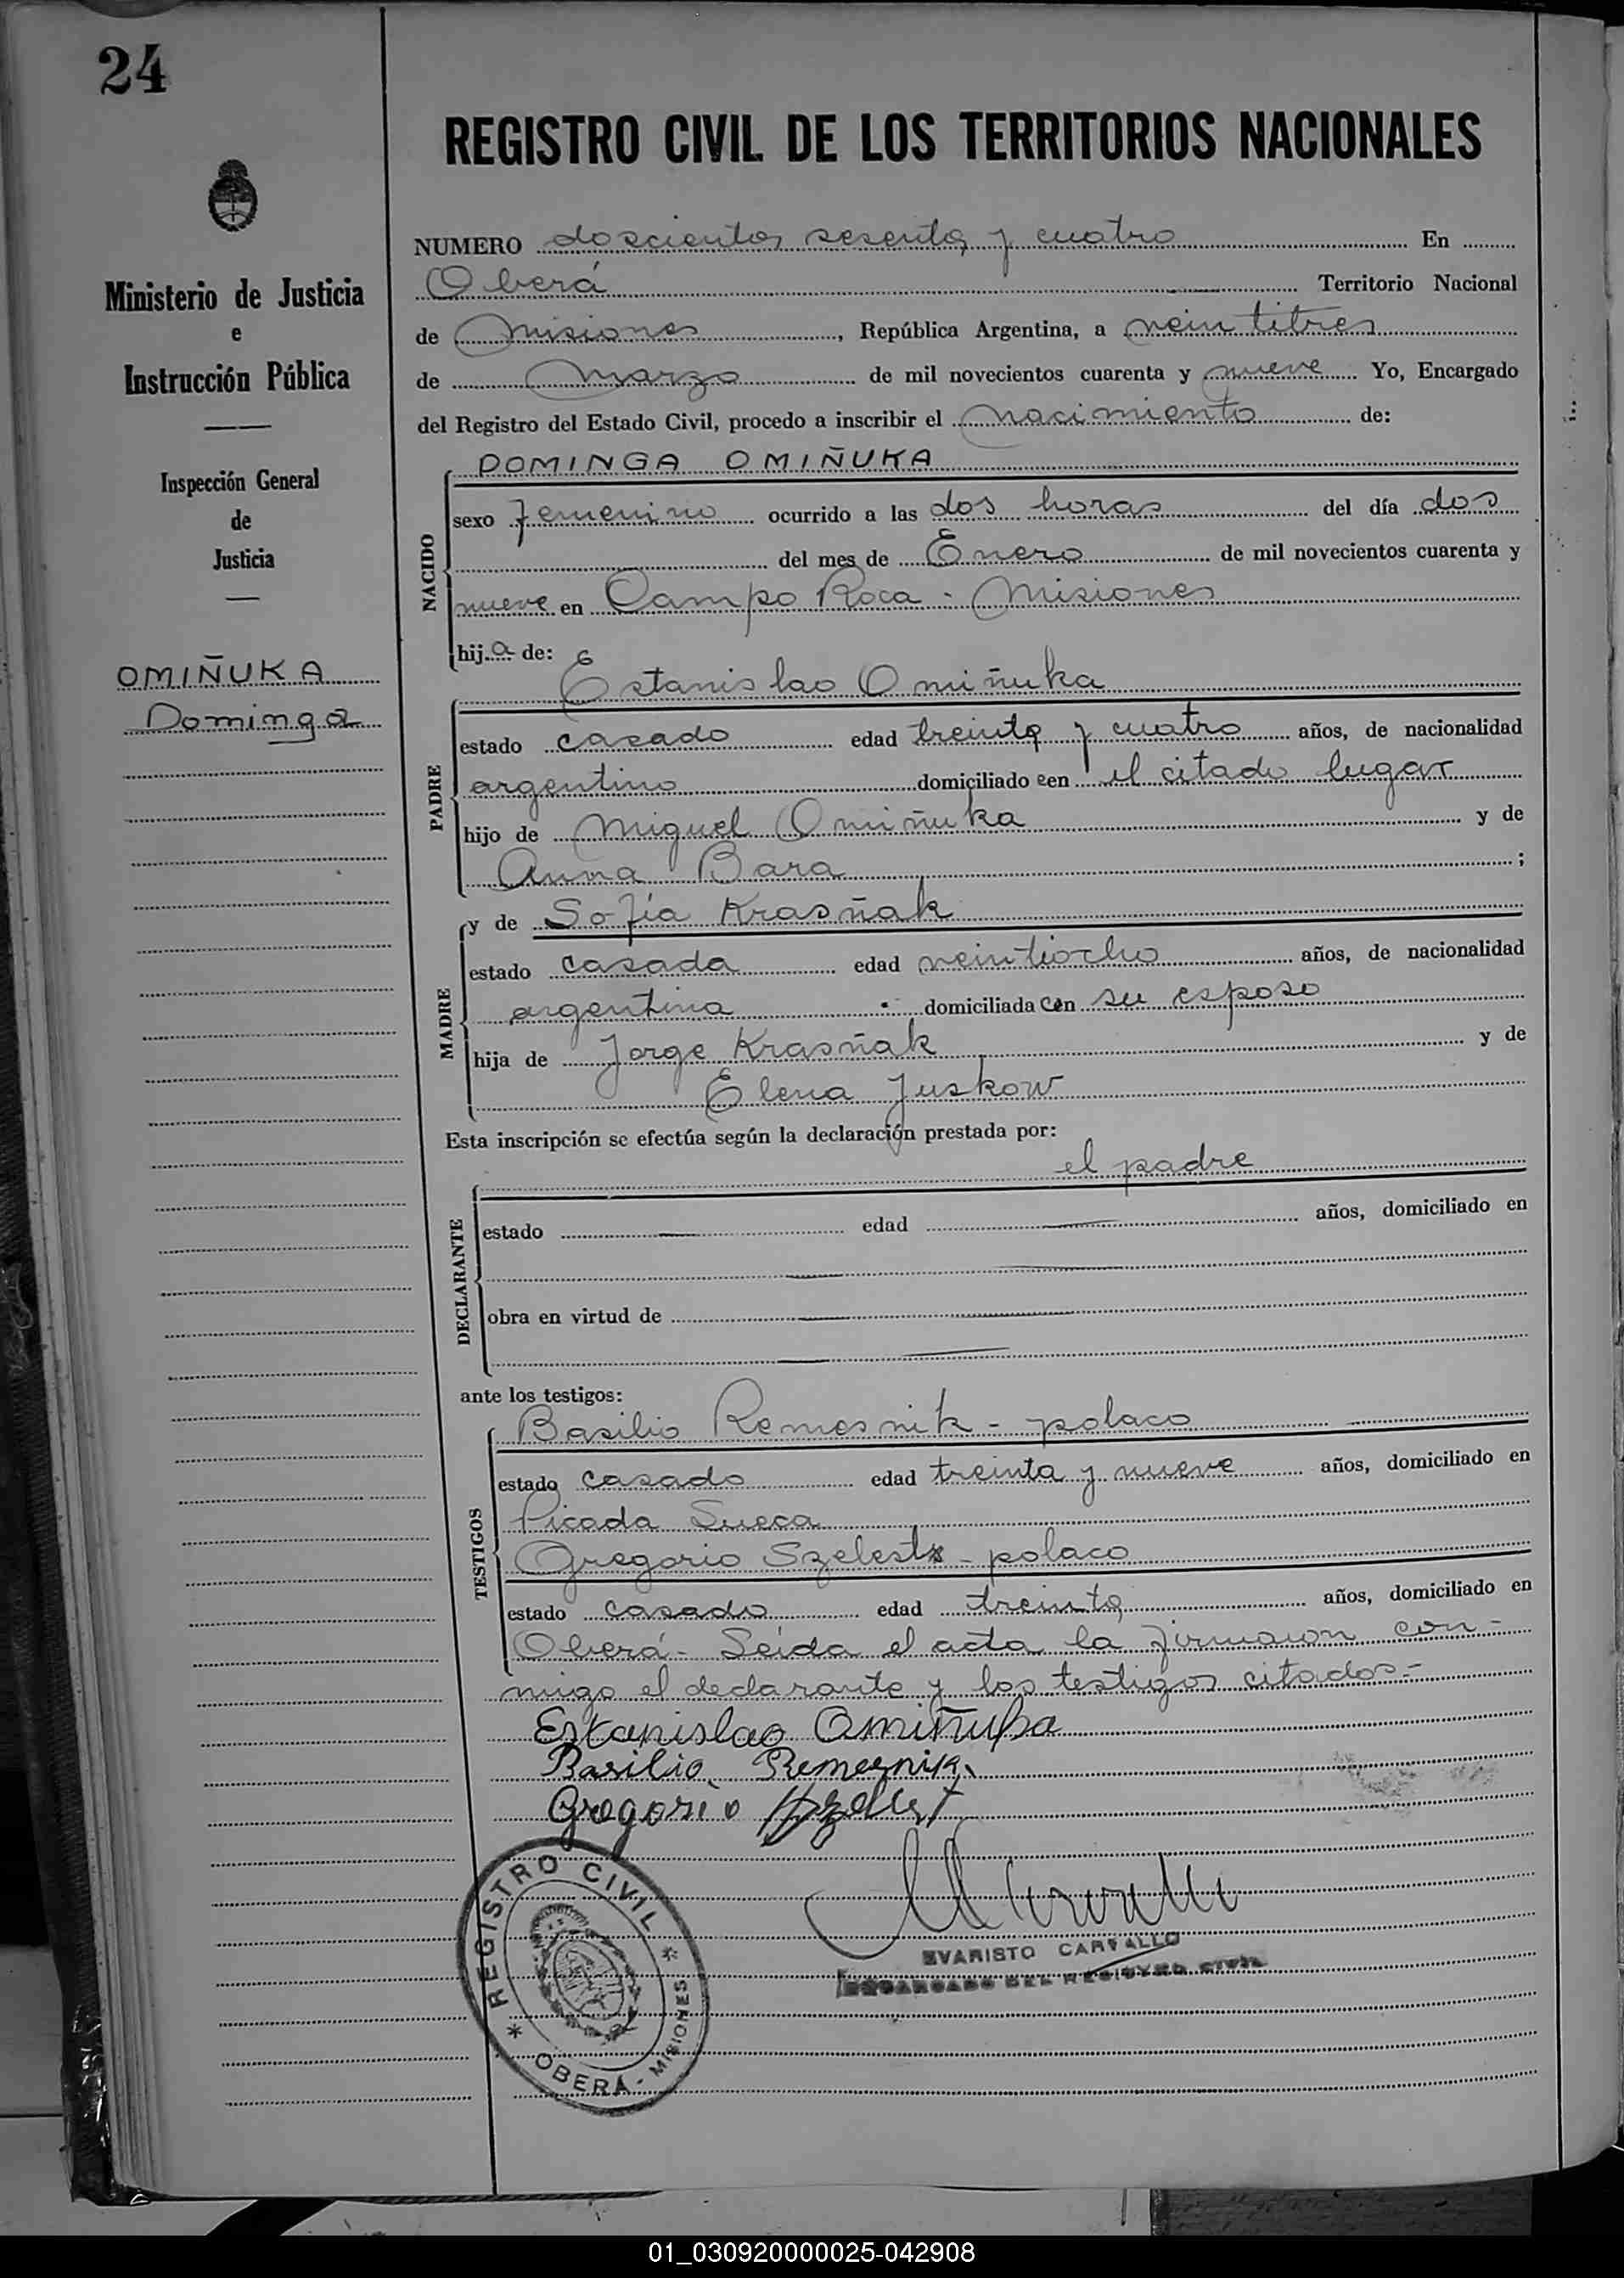 24
REGISTRO CIVIL DE LOS TERRITORIOS NACIONALES
Ministerio de Justicia
e
Instrucción Pública
Inspección General
de
Justicia
OMIÑUKA
Dominga
NUMERO doscientos sesenta y cuatro En
Oberá Territorio Nacional
de Misiones, República Argentina, a veintitres
de Marzo de mil novecientos cuarenta y nueve Yo, Encargado
del Registro del Estado Civil, procedo a inscribir el nacimiento de:
DOMINGA OMIÑUKA
NACIDO
sexo femenino ocurrido a las dos horas del día dos
del mes de Enero de mil novecientos cuarenta y
nueve en Campo Roca - Misiones
hija de:
Estanislao Omiñuka
PADRE
estado casado edad treinta y cuatro años, de nacionalidad
argentino domiciliado en el citado lugar
hijo de Miguel Omiñuka y de
Anna Bara ;
MADRE
y de Sofía Krasñak
estado casada edad veintiocho años, de nacionalidad
argentina domiciliada con su esposo
hija de Jorge Krasñak y de
Elena Juskow
Esta inscripción se efectúa según la declaración prestada por:
el padre
DECLARANTE
estado edad años, domiciliado en
obra en virtud de
ante los testigos:
TESTIGOS
Basilio Remesnik - polaco
estado casado edad treinta y nueve años, domiciliado en
Picada Sueca
Gregorio Szelest - polaco
estado casado edad treinta años, domiciliado en
Oberá - Leída el acta la firmaron con-
migo el declarante y los testigos citados.-
Estanislao Omiñuka
Basilio Remesnik
Gregorio Szelest
REGISTRO CIVIL
OBERÁ - MISIONES
EVARISTO CARVALLO
ENCARGADO DEL REGISTRO CIVIL
01_030920000025-042908